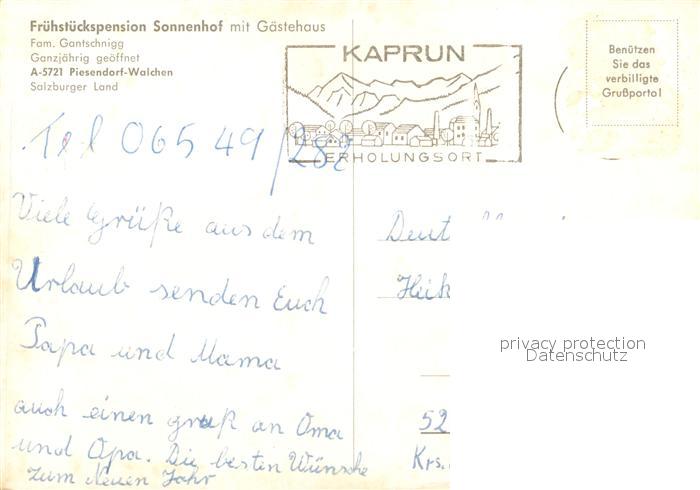 Frühstückspension Sonnenhof mit Gästehaus
Fam. Gantschnigg
Ganzjährig geöffnet
A-5721 Piesendorf-Walchen
Salzburger Land
KAPRUN
ERHOLUNGSORT
Benützen
Sie das
verbilligte
Grußporto!
Tel 065 49/282
Viele Grüße aus dem
Urlaub senden Euch
Papa und Mama
auch einen gruß an Oma
und Opa. Die besten Wünsche
zum Neuen Jahr
52
Krs.
privacy protection
Datenschutz